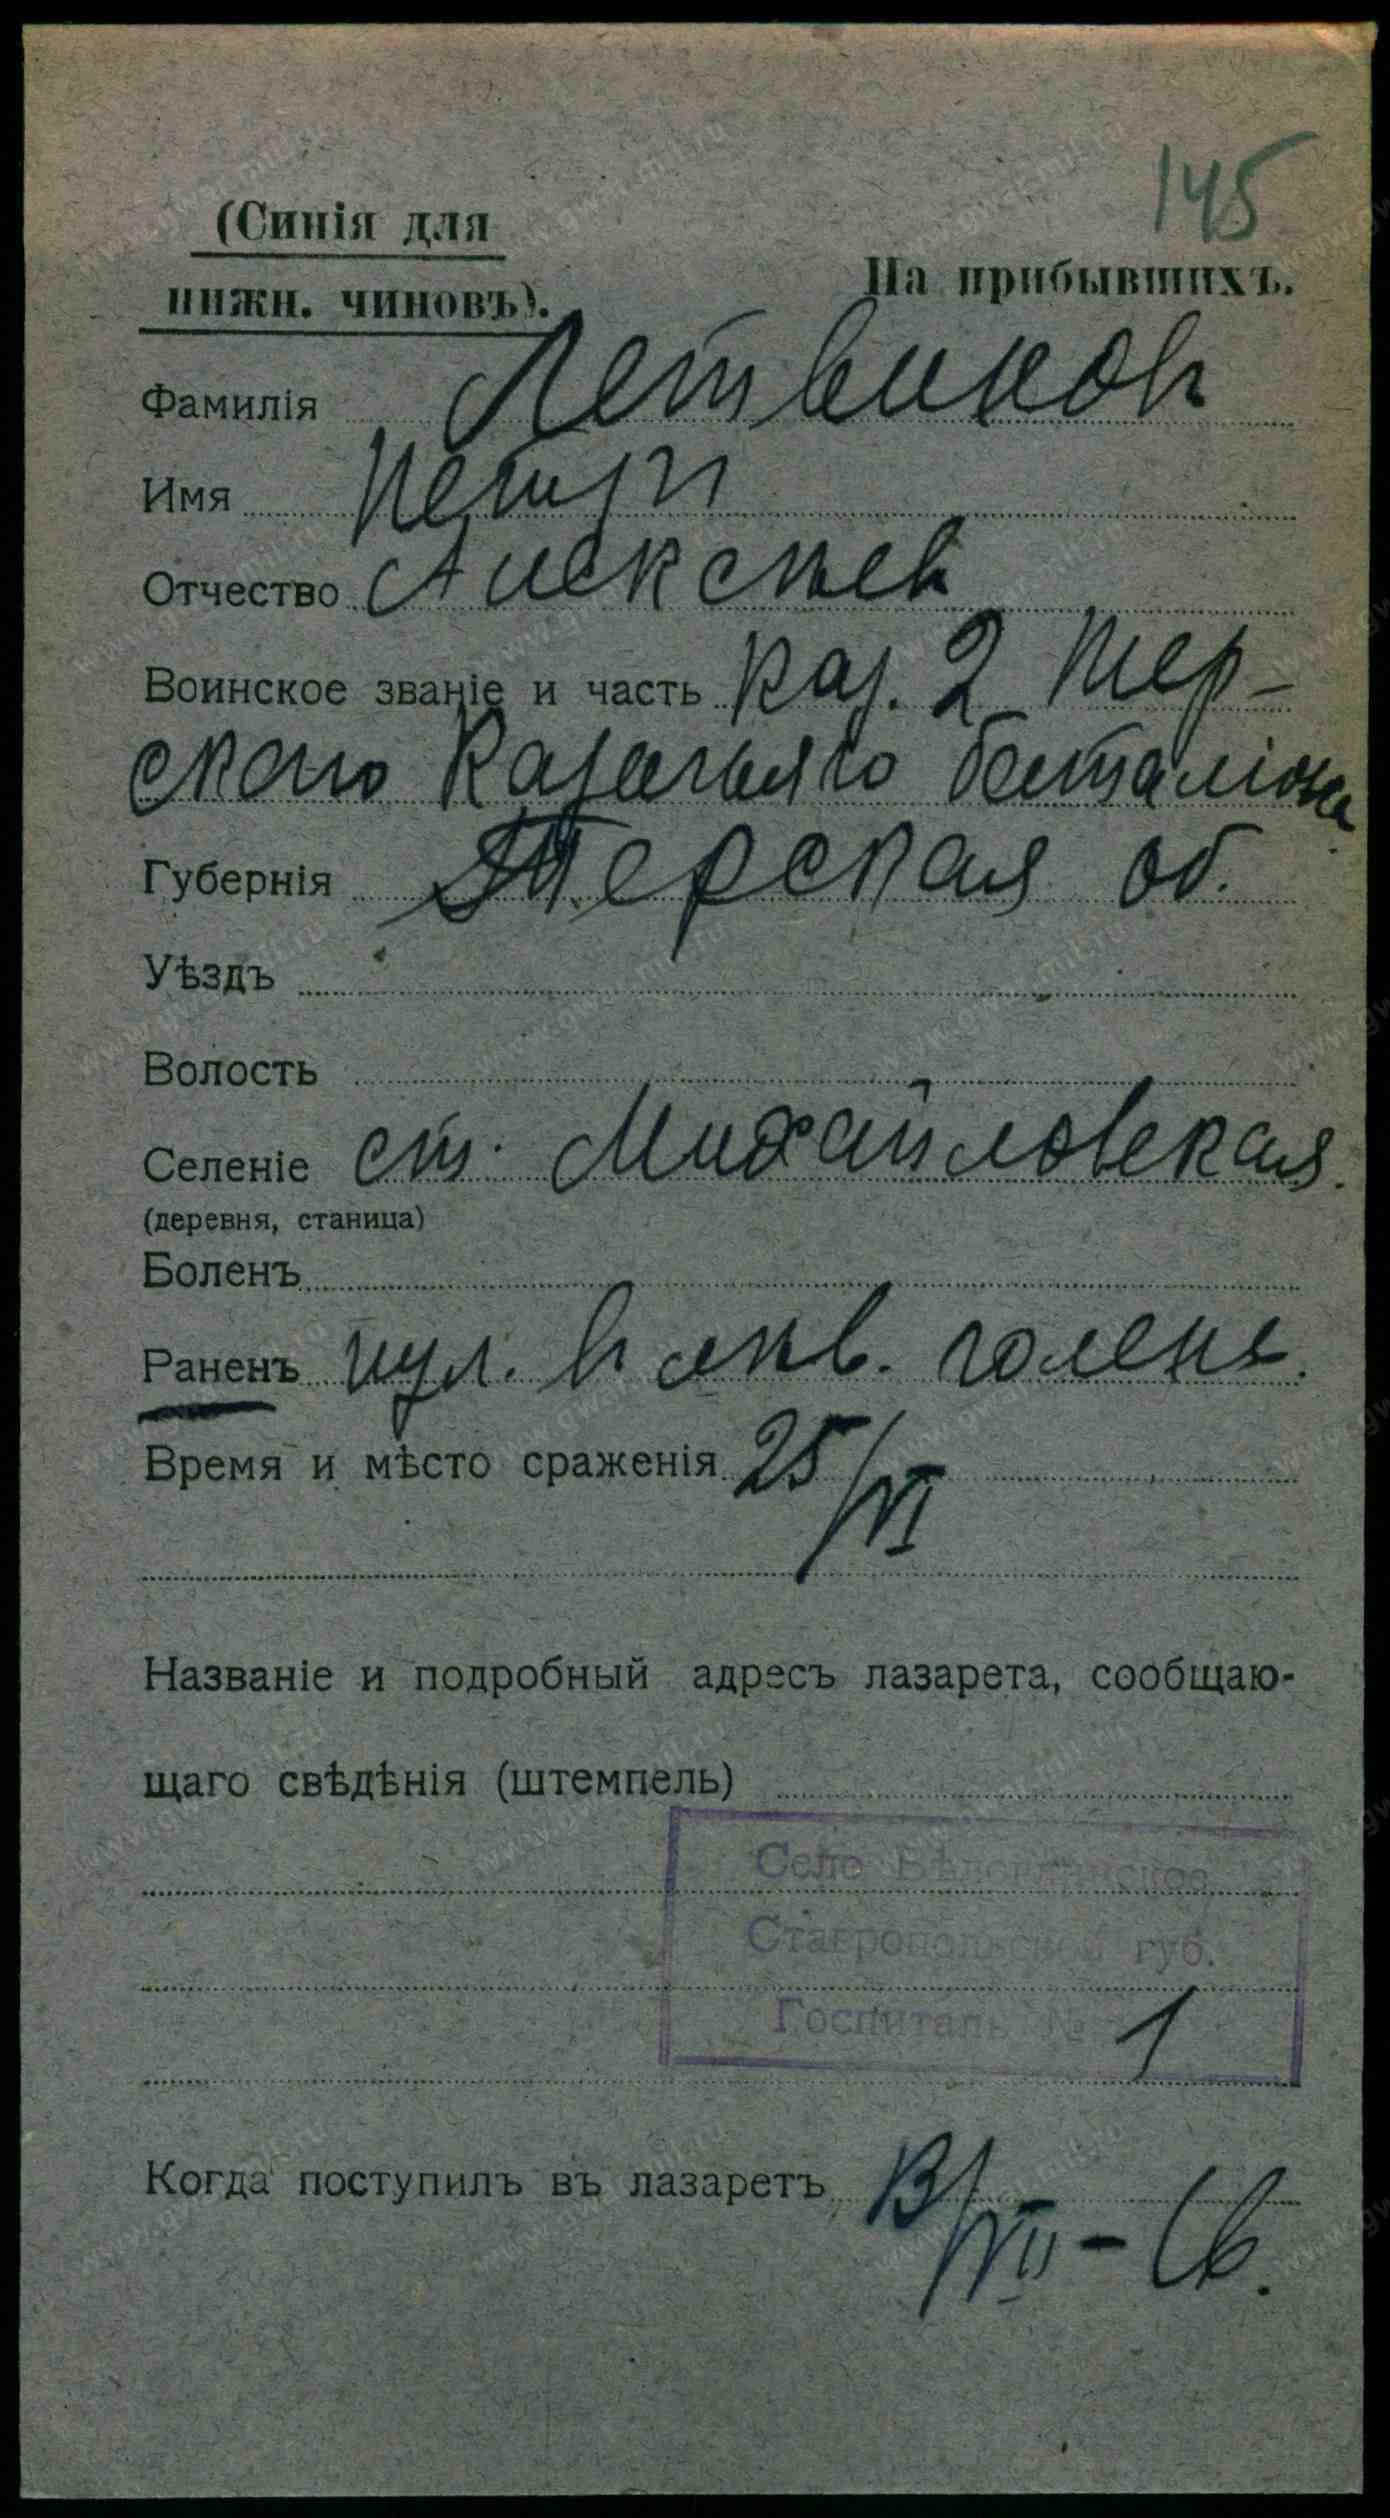 145
(Синія для
нижн. чиновъ).
На прибывшихъ.
Фамилія Летвиновъ
Имя Петръ
Отчество Алексѣев
Воинское званіе и часть каз. 2 Тер-
скаго Казачьяго баталіона
Губернія Терская об.
Уѣздъ
Волость
Селеніе ст. Михайловская.
(деревня, станица)
Боленъ
Раненъ пул. в лѣв. голень.
Время и мѣсто сраженія 25/VI
Названіе и подробный адресъ лазарета, сообщаю-
щаго свѣдѣнія (штемпель)
Село Бѣлоглинское
Ставропольской губ.
Госпиталь № 1
Когда поступилъ въ лазаретъ